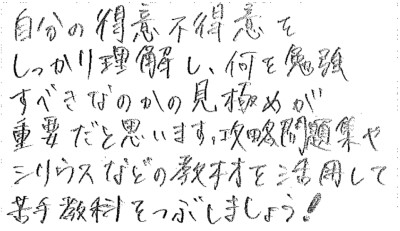 自分の得意不得意を
しっかり理解し、何を勉強
すべきなのかの見極めが
重要だと思います。攻略問題集や
シリウスなどの教材を活用して
苦手教科をつぶしましょう!